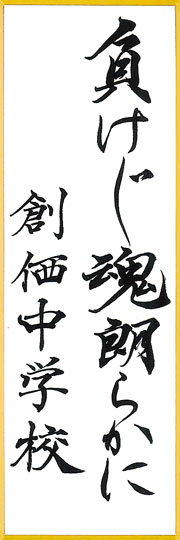 負けじ魂朗らかに
創価中学校